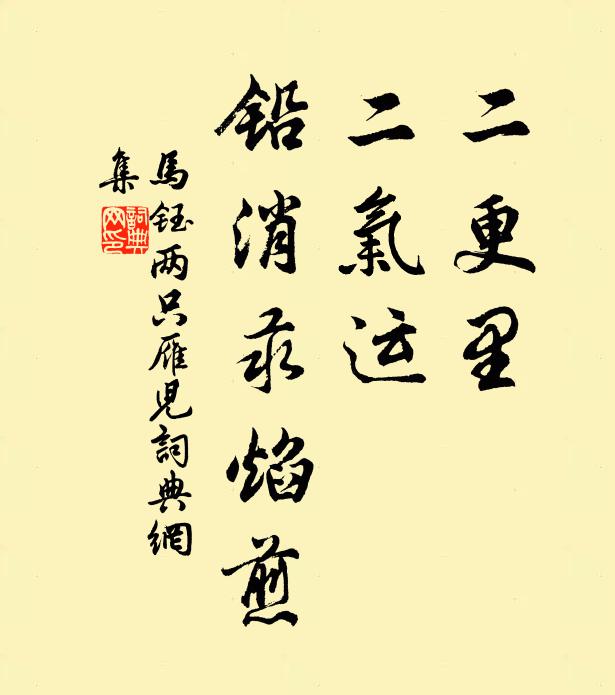 二更里
二氣运
鉛消汞焰煎
馬鈺两只雁兒詞典網
集
詞典
网印